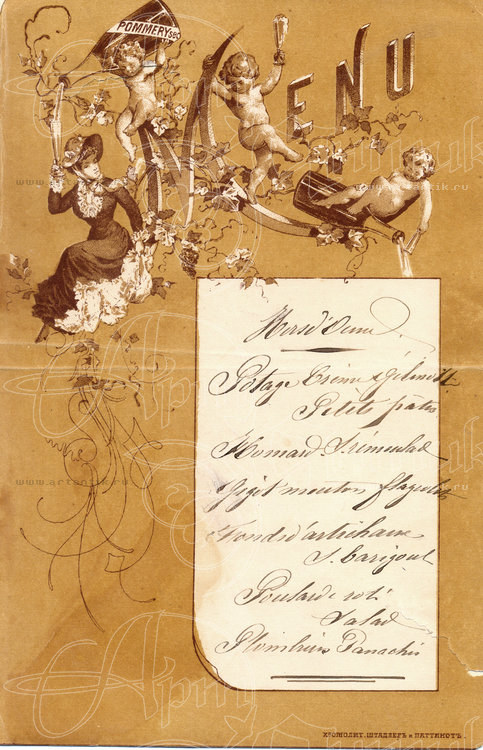 POMMERY SEC
MENU
Hors d'Œuvre
Potage Crème
Petits patés
Homard Rémoulad
Gigot mouton flageolets
Fonds d'artichaux
S. barigoul
Poularde roti
Salad
Plombière Panachés
ХРОМОЛИТ. ШТАДЛЕРЪ и ПАТТИНОТЪ
www.artantik.ru